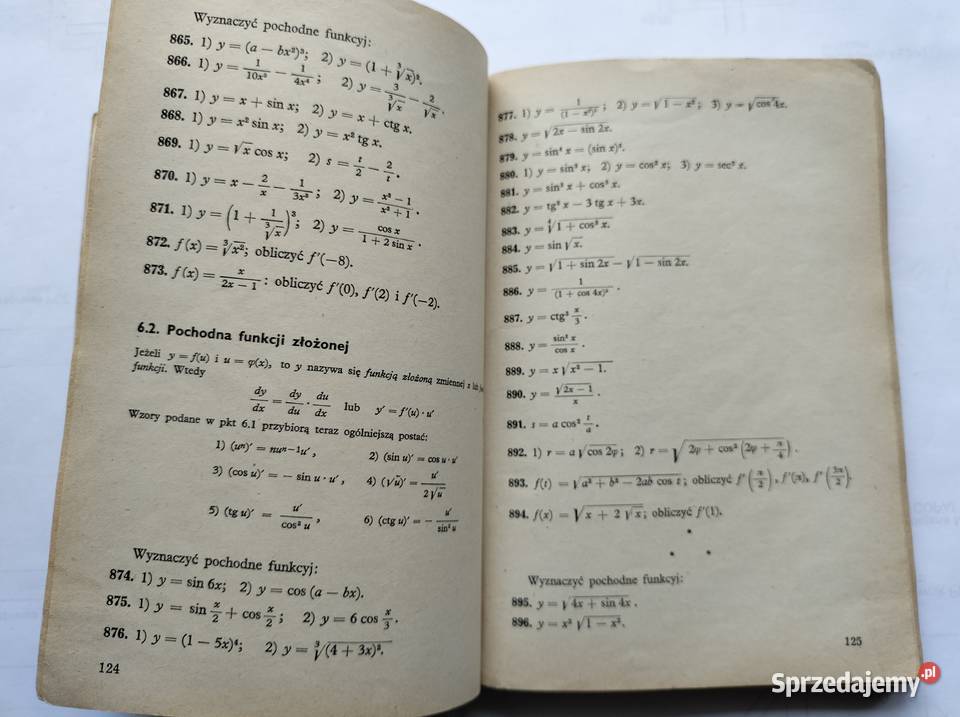 Wyznaczyć pochodne funkcyj:
865. 1) y = (a − bx²)³; 2) y = (1 + ∛x)³.
866. 1) y = 1/10x² − 1/4x⁴; 2) y = 3/∛x − 2/√x.
867. 1) y = x + sin x; 2) y = x + ctg x.
868. 1) y = x² sin x; 2) y = x² tg x.
869. 1) y = √x cos x; 2) s = t/2 − 2/t.
870. 1) y = x − 2/x − 1/3x³; 2) y = x² − 1/x² + 1.
871. 1) y = (1 + 1/∛x)³; 2) y = cos x/1 + 2 sin x.
872. f(x) = ∛x²; obliczyć f′(−8).
873. f(x) = x/2x − 1: obliczyć f′(0), f′(2) i f′(−2).
6.2. Pochodna funkcji złożonej
Jeżeli y = f(u) i u = φ(x), to y nazywa się funkcją złożoną zmiennej x
funkcji. Wtedy
dy/dx = dy/du · du/dx lub y′ = f′(u) · u′
Wzory podane w pkt 6.1 przybiorą teraz ogólniejszą postać:
1) (uⁿ)′ = nuⁿ⁻¹u′, 2) (sin u)′ = cos u · u′
3) (cos u)′ = − sin u · u′, 4) (√u)′ = u′/2√u
5) (tg u)′ = u′/cos² u, 6) (ctg u)′ = − u′/sin² u
Wyznaczyć pochodne funkcyj:
874. 1) y = sin 6x; 2) y = cos (a − bx).
875. 1) y = sin x/2 + cos x/2; 2) y = 6 cos x/3.
876. 1) y = (1 − 5x)⁴; 2) y = ∛(4 + 3x)².
124
877. 1) y = 1/(1 − x²)⁵; 2) y = √1 − x²; 3) y = √cos 4x.
878. y = √2x − sin 2x.
879. y = sin⁴ x = (sin x)⁴.
880. 1) y = sin³ x; 2) y = cos² x; 3) y = sec² x.
881. y = sin³ x + cos³ x.
882. y = tg³ x − 3 tg x + 3x.
883. y = ∜1 + cos² x.
884. y = sin √x.
885. y = √1 + sin 2x − √1 − sin 2x.
886. y = 1/(1 + cos 4x)³.
887. y = ctg³ x/3.
888. y = sin² x/cos x.
889. y = x √x² − 1.
890. y = √2x − 1/x.
891. s = a cos² t/a.
892. 1) r = a √cos 2φ; 2) r = √2φ + cos² (2φ + π/4).
893. f(t) = √a² + b² − 2ab cos t; obliczyć f′(π/2), f′(π), f′(3π/2).
894. f(x) = √x + 2 √x; obliczyć f′(1).
*
* *
Wyznaczyć pochodne funkcyj:
895. y = √4x + sin 4x.
896. y = x² √1 − x².
125
Sprzedajemy.pl